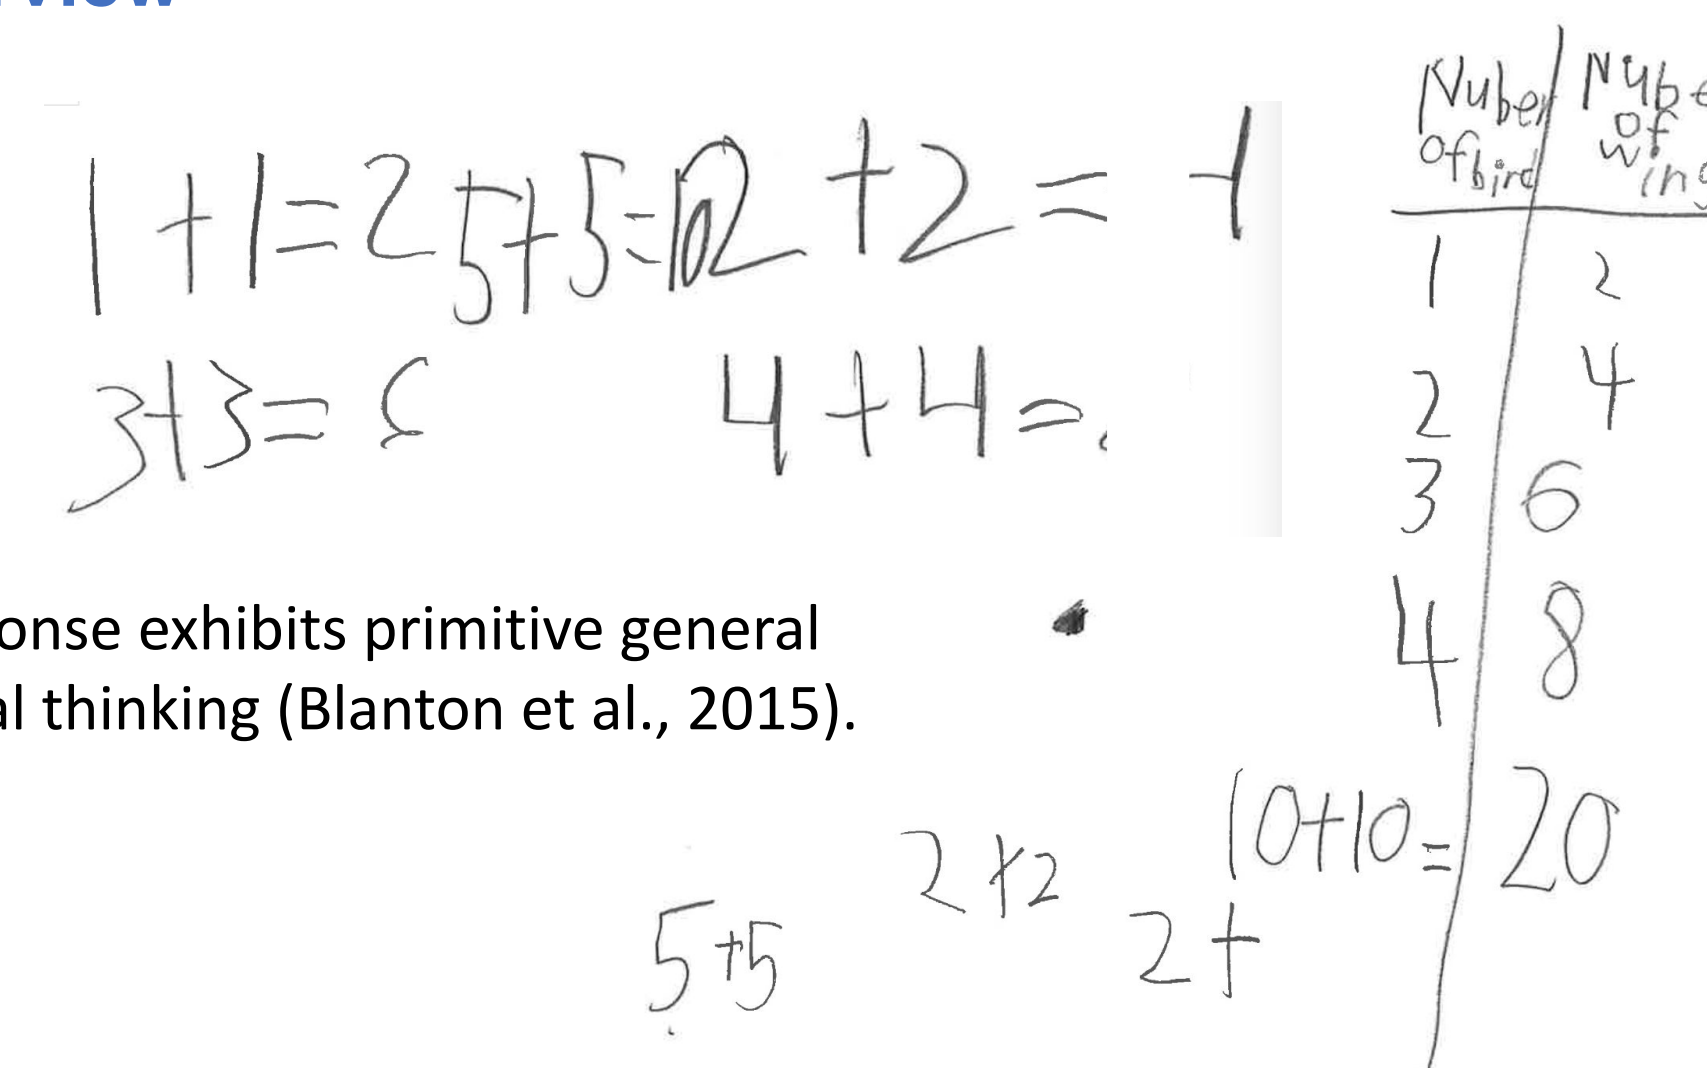 1+1=2 5+5=10 2+2=
3+3=
4+4=
onse exhibits primitive general
al thinking (Blanton et al., 2015).
5+5
2+2
2+
Nuber
of bird
Nube
of
wing
1 2
2 4
3 6
4 8
10+10= 20